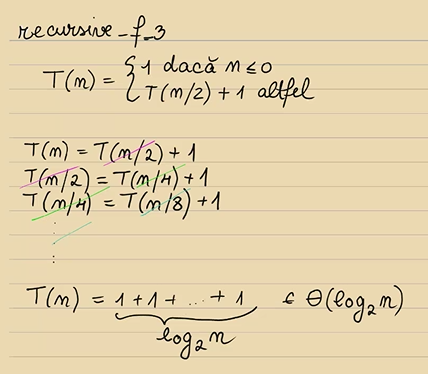 recursive_f_3
T(n) = { 1 dacă n ≤ 0
T(n/2) + 1 altfel
T(n) = T(n/2) + 1
T(n/2) = T(n/4) + 1
T(n/4) = T(n/8) + 1
⋮
T(n) = 1 + 1 + ... + 1 ∈ Θ(log₂n)
log₂n